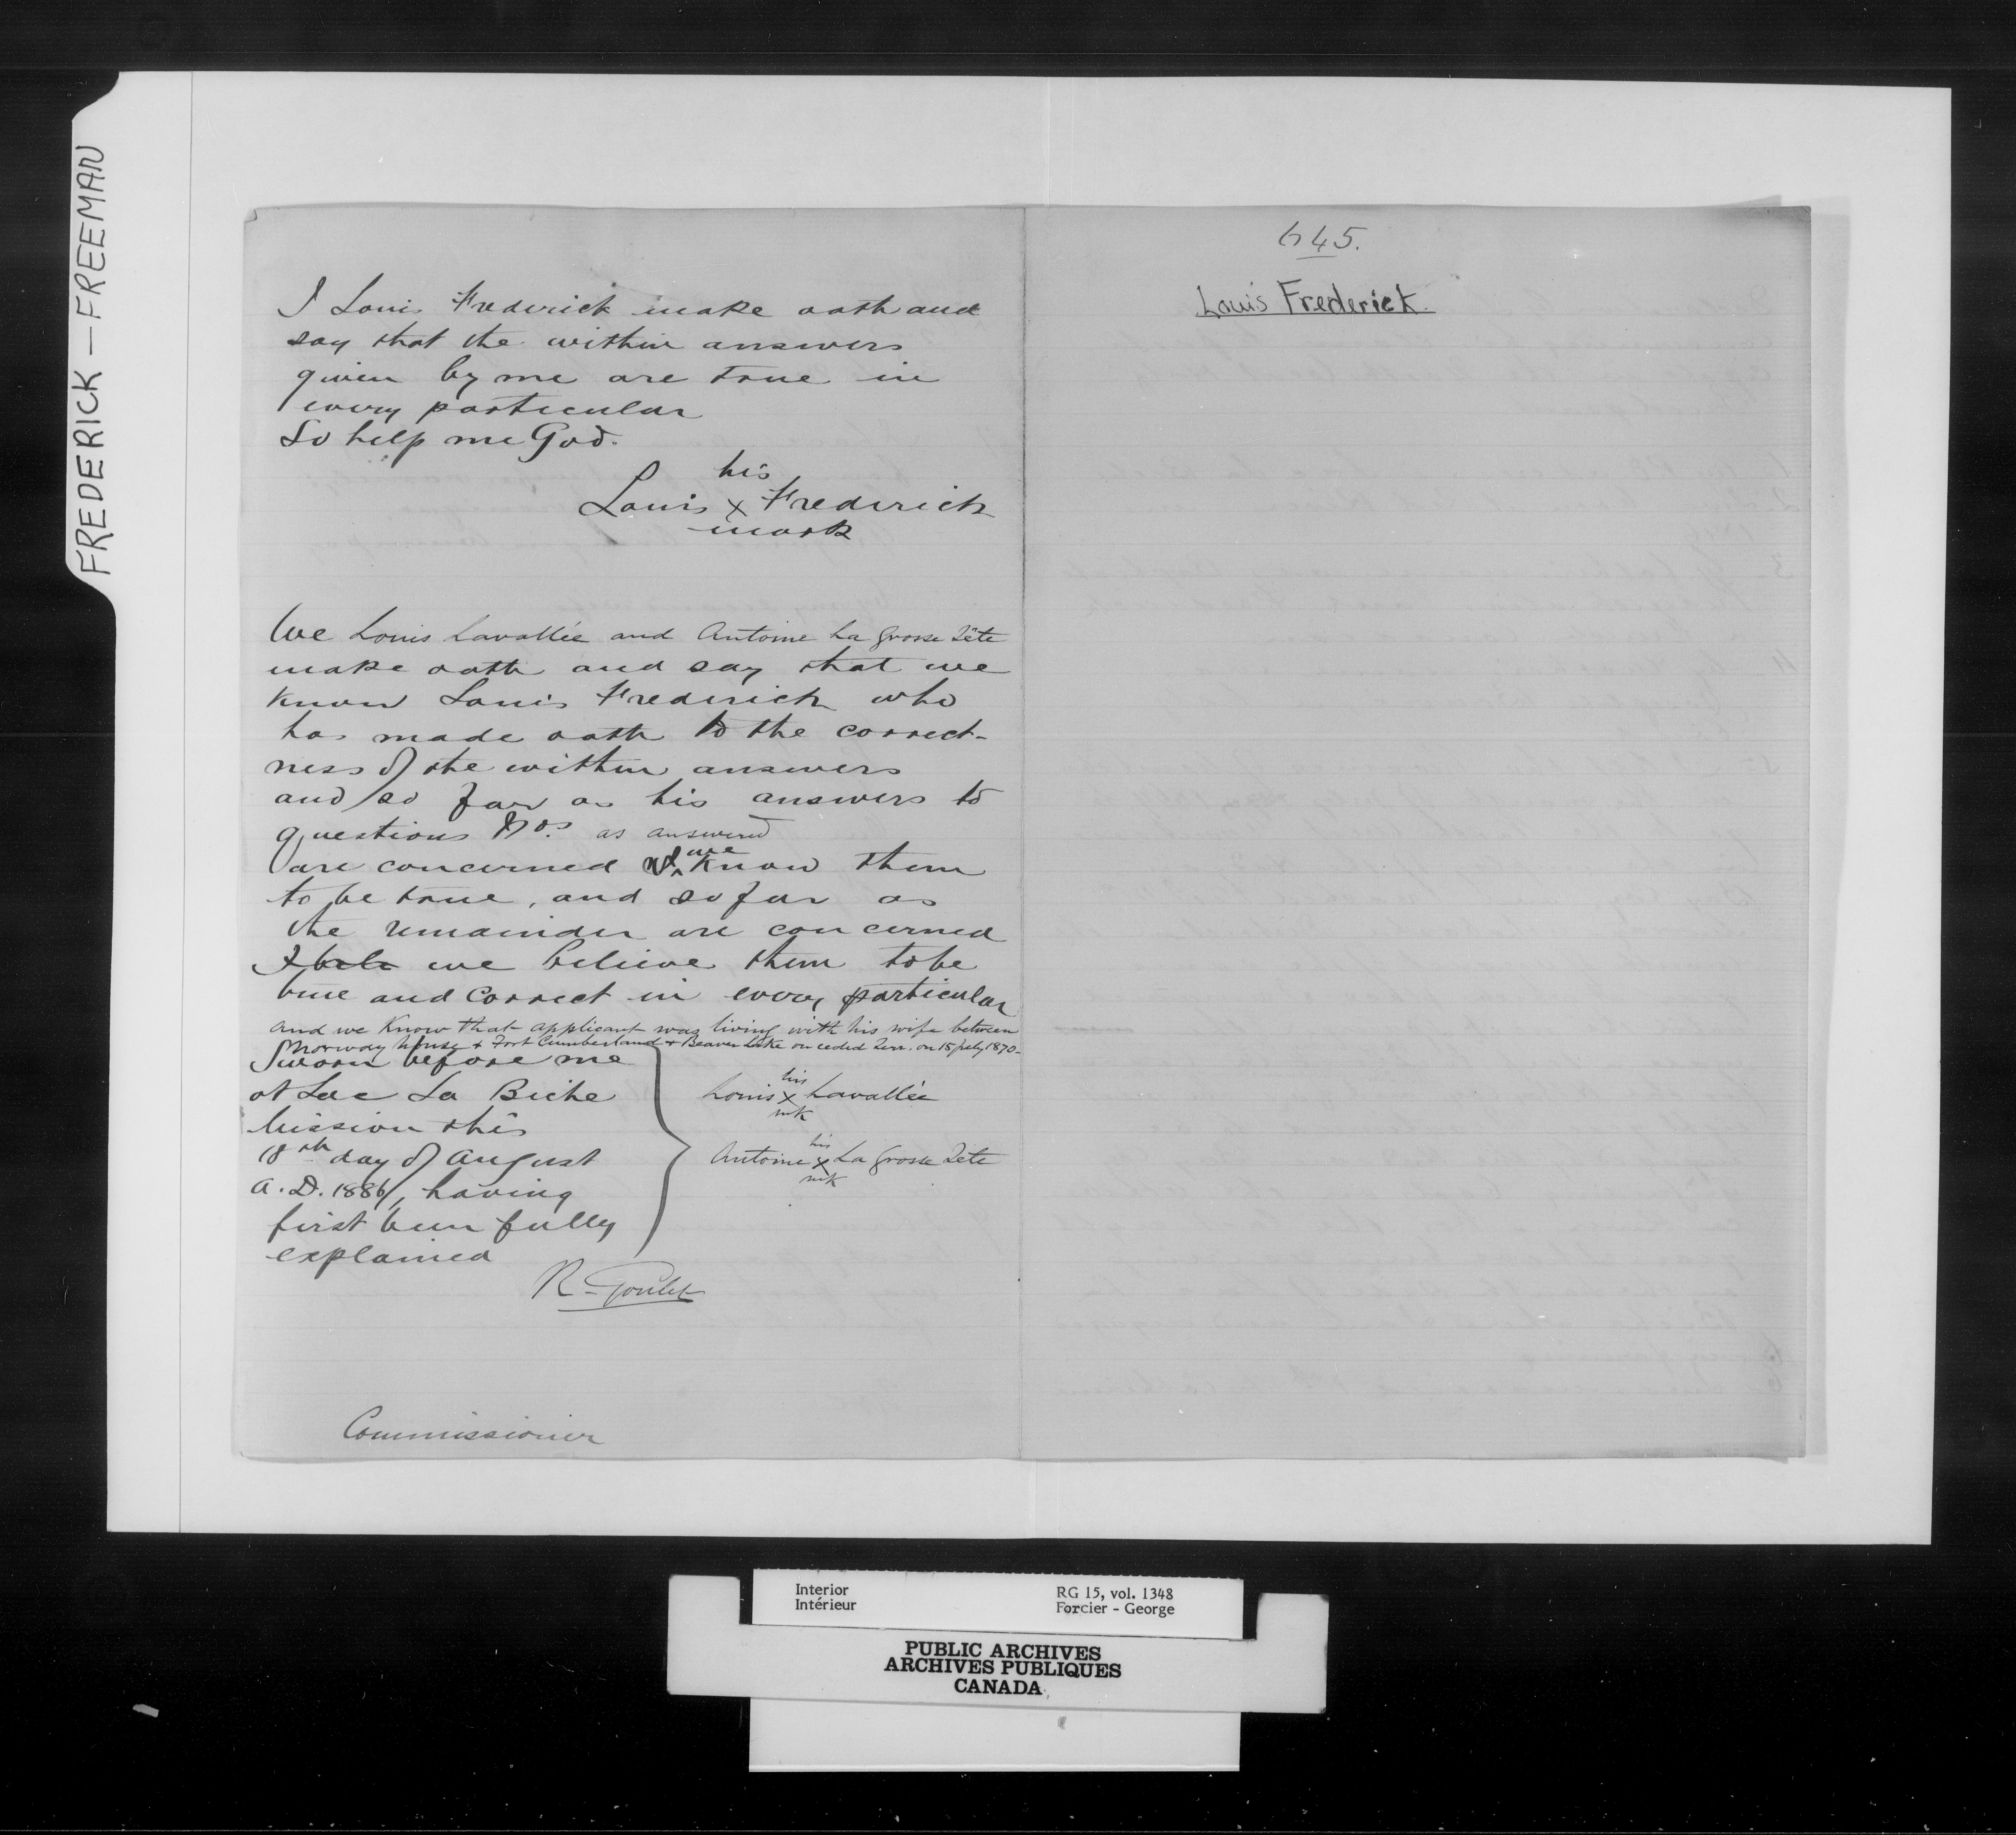 FREDERICK — FREEMAN
I Louis Frederick make oath and
say that the within answers
given by me are true in
every particular
So help me God.
his
Louis x Frederick
mark
We Louis Lavallée and Antoine La Grosse Tête
make oath and say that we
know Louis Frederick who
has made oath to the correct-
ness of the within answers
and so far as his answers to
questions Nos. as answered
are concerned we know them
to be true, and so far as
the remainder are concerned
I bele we believe them to be
true and correct in every particular
and we Know that applicant was living with his wife between
Norway House & Fort Cumberland & Beaver Lake on ceded Terr. on 15 July 1870-
Sworn before me
at Lac La Biche
Mission this
18th day of August
A.D. 1886, having
first been fully
explained
his
Louis x Lavallée
mk
his
Antoine x La Grosse Tête
mk
R. Goulet
Commissioner
645.
Louis Frederick.
Interior
Intérieur
RG 15, vol. 1348
Forcier - George
PUBLIC ARCHIVES
ARCHIVES PUBLIQUES
CANADA